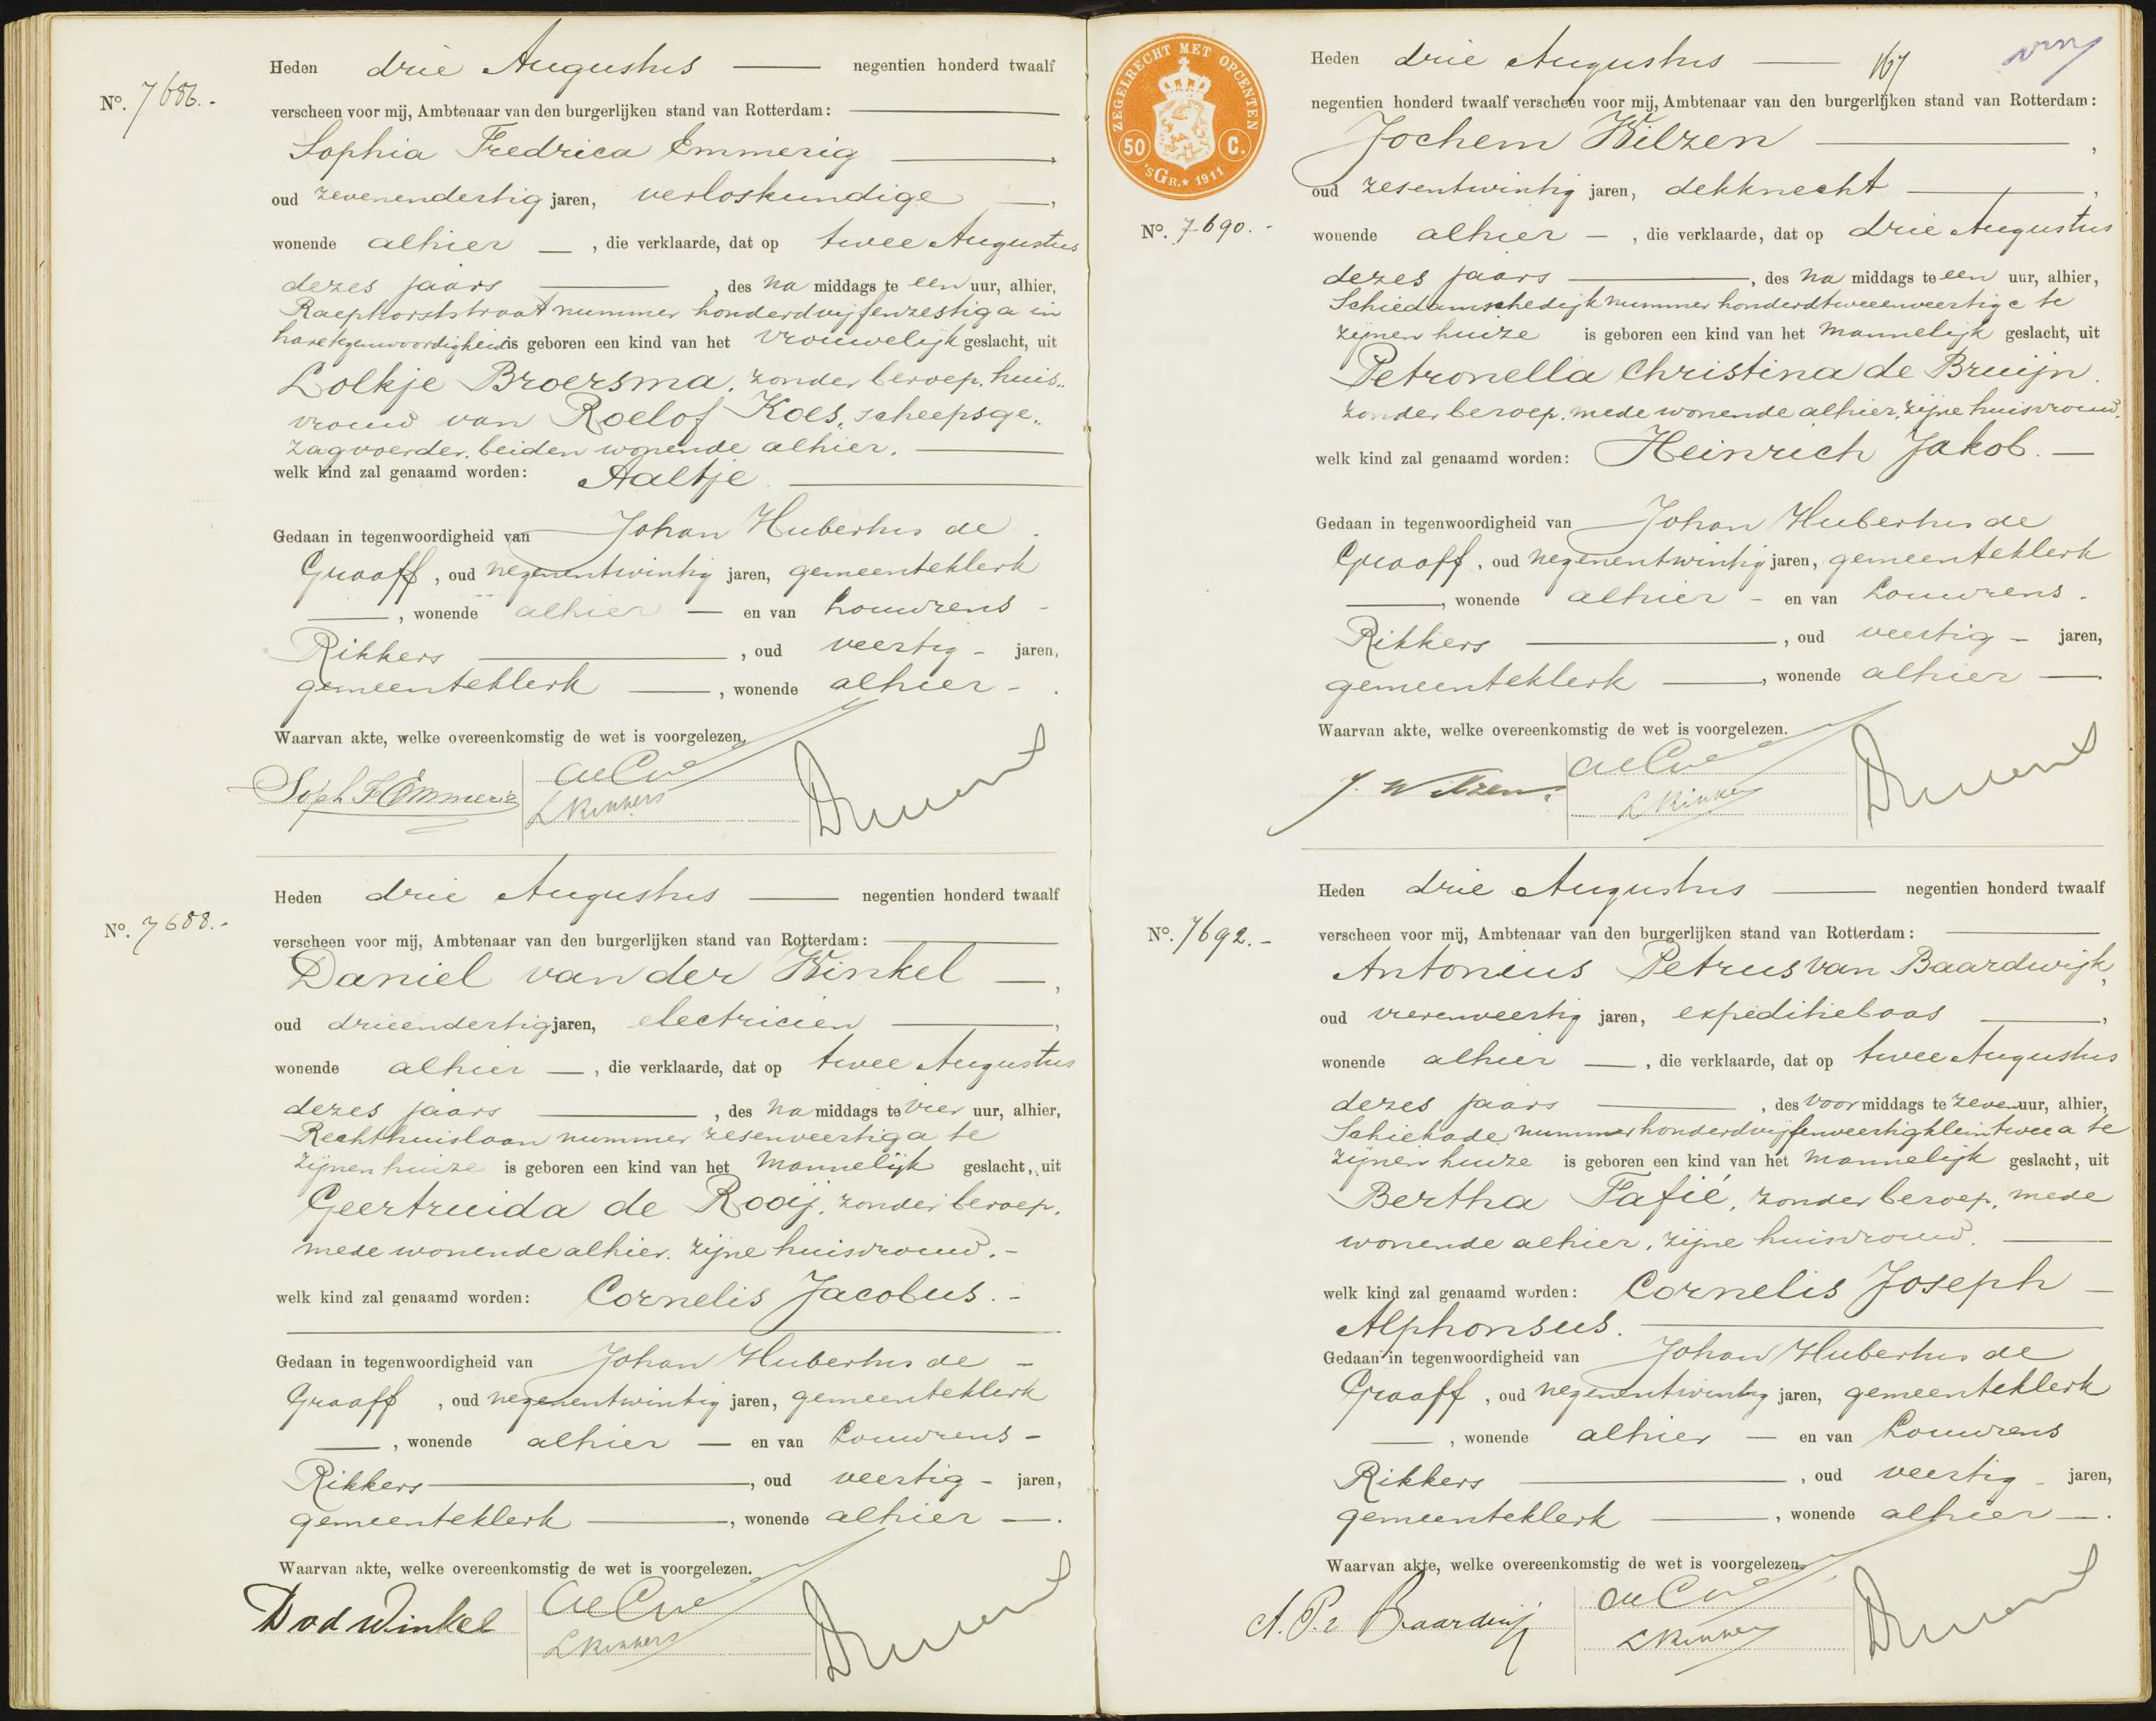 No. 7686.-
Heden drie Augustus — negentien honderd twaalf
verscheen voor mij, Ambtenaar van den burgerlijken stand van Rotterdam: —
Sophia Fredrica Emmerig —,
oud zevenendertig jaren, verloskundige —,
wonende alhier —, die verklaarde, dat op twee Augustus
dezes jaars —, des na middags te een uur, alhier,
Raephorststraat nummer honderdvijfenzestig a in
hare tegenwoordigheid is geboren een kind van het vrouwelijk geslacht, uit
Lolkje Broersma, zonder beroep, huis-
vrouw van Roelof Koes, scheepsge-
zagvoerder, beiden wonende alhier. —
welk kind zal genaamd worden: Aaltje. —
Gedaan in tegenwoordigheid van Johan Hubertus de
Graaff, oud negenentwintig jaren, gemeenteklerk
—, wonende alhier — en van Louwrens -
Rikkers —, oud veertig - jaren,
gemeenteklerk —, wonende alhier -.
Waarvan akte, welke overeenkomstig de wet is voorgelezen.
Soph F Emmerig
L Rikkers
No. 7688.-
Heden drie Augustus — negentien honderd twaalf
verscheen voor mij, Ambtenaar van den burgerlijken stand van Rotterdam: —
Daniel van der Winkel —,
oud drieendertig jaren, electricien —,
wonende alhier —, die verklaarde, dat op twee Augustus
dezes jaars —, des na middags te vier uur, alhier,
Rechthuislaan nummer zesenveertig a te
zijnen huize is geboren een kind van het mannelijk geslacht, uit
Geertruida de Rooij, zonder beroep,
mede wonende alhier, zijne huisvrouw. -
welk kind zal genaamd worden: Cornelis Jacobus. -
Gedaan in tegenwoordigheid van Johan Hubertus de -
Graaff, oud negenentwintig jaren, gemeenteklerk
—, wonende alhier — en van Louwrens -
Rikkers —, oud veertig - jaren,
gemeenteklerk —, wonende alhier —.
Waarvan akte, welke overeenkomstig de wet is voorgelezen.
D v d Winkel
L Rikkers
ZEGELRECHT MET OPCENTEN
50 C.
'sGR.* 1911
167
No. 7690.-
Heden drie Augustus —
negentien honderd twaalf verscheen voor mij, Ambtenaar van den burgerlijken stand van Rotterdam:
Jochem Wilzen —,
oud zesentwintig jaren, dekknecht —,
wonende alhier —, die verklaarde, dat op drie Augustus
dezes jaars —, des na middags te een uur, alhier,
Schiedamschedijk nummer honderdtweeenveertig c te
zijnen huize is geboren een kind van het mannelijk geslacht, uit
Petronella Christina de Bruijn,
zonder beroep, mede wonende alhier, zijne huisvrouw.
welk kind zal genaamd worden: Heinrich Jakob. —
Gedaan in tegenwoordigheid van Johan Hubertus de
Graaff, oud negenentwintig jaren, gemeenteklerk
—, wonende alhier - en van Louwrens -
Rikkers —, oud veertig - jaren,
gemeenteklerk —, wonende alhier —.
Waarvan akte, welke overeenkomstig de wet is voorgelezen.
J. Wilzen.
L Rikkers
No. 7692.-
Heden drie Augustus — negentien honderd twaalf
verscheen voor mij, Ambtenaar van den burgerlijken stand van Rotterdam: —
Antonius Petrus van Baardwijk,
oud vierenveertig jaren, expeditiebaas —,
wonende alhier —, die verklaarde, dat op twee Augustus
dezes jaars —, des voor middags te zeven uur, alhier,
Schiekade nummer honderdvijfenveertig klein twee a te
zijnen huize is geboren een kind van het mannelijk geslacht, uit
Bertha Tafié, zonder beroep, mede
wonende alhier, zijne huisvrouw. —
welk kind zal genaamd worden: Cornelis Joseph —
Alphonsus. —
Gedaan in tegenwoordigheid van Johan Hubertus de
Graaff, oud negenentwintig jaren, gemeenteklerk
—, wonende alhier — en van Louwrens
Rikkers —, oud veertig - jaren,
gemeenteklerk —, wonende alhier —.
Waarvan akte, welke overeenkomstig de wet is voorgelezen.
A. P. v Baardwijk
L Rikkers